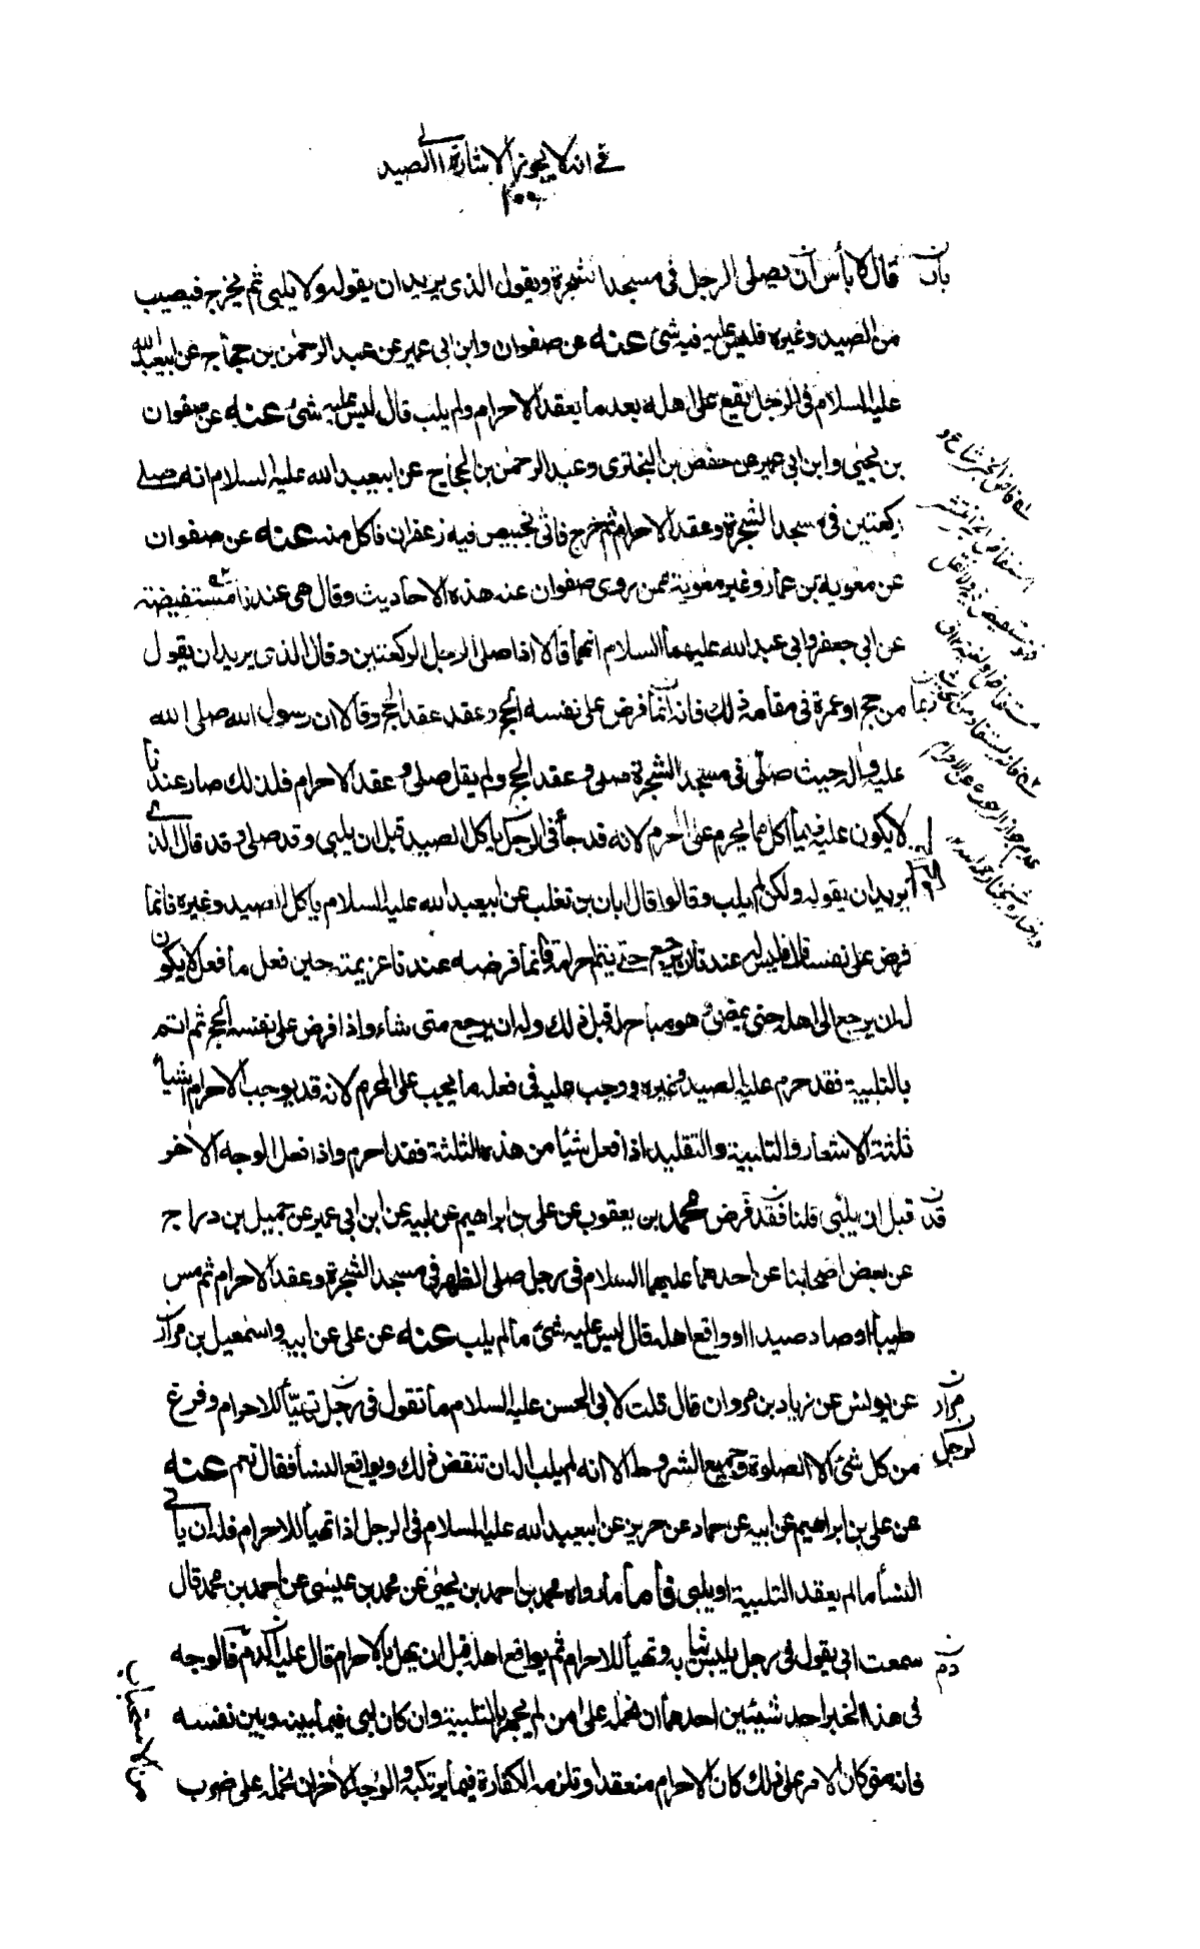 في انه لا يجوز الاشارة الى الصيد
قال لا بأس ان يصلى الرجل فى مسجد الشجرة ويقول الذى يريد ان يقوله ولا يلبى ثم يخرج فيصيب
من الصيد وغيره فليس عليه فيه شئ عنه عن صفوان وابن ابى عمير عن عبد الرحمن بن حجاج عن ابيعبد الله
عليه السلام فى الرجل يقع على اهله بعد ما يعقد الاحرام ولم يلب قال ليس عليه شئ عنه عن صفوان
بن يحيى وابن ابى عمير عن حفص بن البخترى وعبد الرحمن بن الحجاج عن ابيعبد الله عليه السلام انه صلى
ركعتين فى مسجد الشجرة وعقد الاحرام ثم خرج فاتى بخبيص فيه زعفران فاكل منه عنه عن صفوان
عن معوية بن عمار وغير معوية ممن روى صفوان عنه هذه الاحاديث وقال هى عندنا مستفيضة
عن ابى جعفر وابى عبد الله عليهما السلام انهما قالا اذا صلى الرجل الركعتين وقال الذى يريد ان يقول
من حج او عمرة فى مقامه ذلك فانه انما فرض على نفسه الحج وعقد عقد الحج وقالا ان رسول الله صلى الله
عليه وآله حيث صلى فى مسجد الشجرة صلى وعقد الحج ولم يقل صلى وعقد الاحرام فلذلك صار عندنا
لا يكون عليه فيما اكل مما يحرم على المحرم لانه قد جأ فى الرجل يأكل الصيد قبل ان يلبى وقد صلى وقد قال الذى
يريد ان يقوله ولكن لم يلب وقالوا قال ابان بن تغلب عن ابيعبد الله عليه السلام يأكل الصيد وغيره فانما
فرض على نفسه فليس له عندنا ان يرجع حتى يتم احرامه فانما فرضه عندنا عزيمته حين فعل ما فعل لا يكون
له ان يرجع الى اهله حتى يمضى وهو مباح له قبل ذلك وله ان يرجع متى شاء واذا فرض على نفسه الحج ثم اتم
بالتلبية فقد حرم عليه الصيد وغيره ووجب عليه فى فعله ما يجب على المحرم لانه قد يوجب الاحرام اشيأ
ثلثة الاشعار والتلبية والتقليد اذا فعل شيئا من هذه الثلثة فقد احرم واذا فعل الوجه الاخر
قبل ان يلبى قلنا فقد فرض محمد بن يعقوب عن على بن ابراهيم عن ابيه عن ابن ابى عمير عن جميل بن دراج
عن بعض اصحابنا عن احدهما عليهما السلام فى رجل صلى الظهر فى مسجد الشجرة وعقد الاحرام ثم مس
طيبا او صاد صيدا او واقع اهله قال ليس عليه شئ ما لم يلب عنه عن على عن ابيه واسمعيل بن مرار
عن يونس عن زياد بن مروان قال قلت لابى الحسن عليه السلام ما تقول فى رجل تهيأ للاحرام وفرغ
من كل شئ الا الصلوة وجميع الشروط الا انه لم يلب اله ان تنقض ذلك ويواقع النسأ فقال نعم عنه
عن على بن ابراهيم عن ابيه عن حماد عن حريز عن ابيعبد الله عليه السلام فى الرجل اذا تهيأ للاحرام فله ان يأتى
النسأ ما لم يعقد التلبية او يلبى فأما ما رواه محمد بن احمد بن يحيى عن محمد بن عيسى عن احمد بن محمد قال
سمعت ابى يقول فى رجل يلبس ثيابه وتهيأ للاحرام ثم يواقع اهله قبل ان يهل بالاحرام قال عليه دم فالوجه
فى هذا الخبر احد شيئين احدهما ان نحمله على من لم يجهر بالتلبية وان كان لبى فيما بينه وبين نفسه
فانه متى كان الامر على ذلك كان الاحرام منعقدا وتلزمه الكفارة فيما يرتكبه والوجه الاخر ان نحمله على ضرب
من الاستحباب